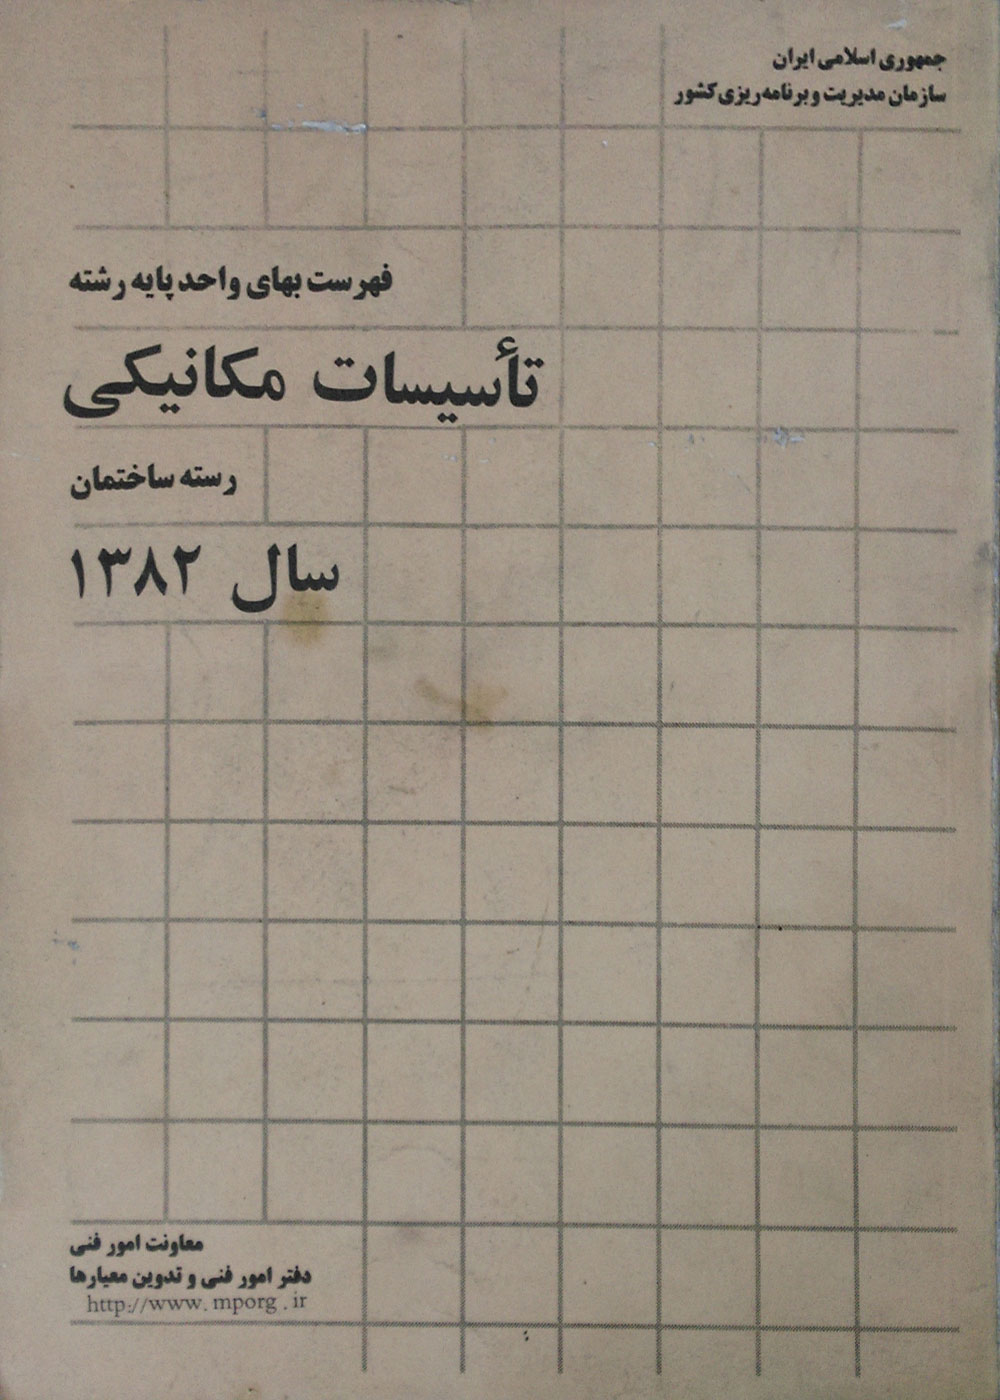 جمهوری اسلامی ایران
سازمان مدیریت و برنامه‌ریزی کشور
فهرست بهای واحد پایه رشته
تأسیسات مکانیکی
رسته ساختمان
سال ۱۳۸۲
معاونت امور فنی
دفتر امور فنی و تدوین معیارها
http://www.mporg.ir